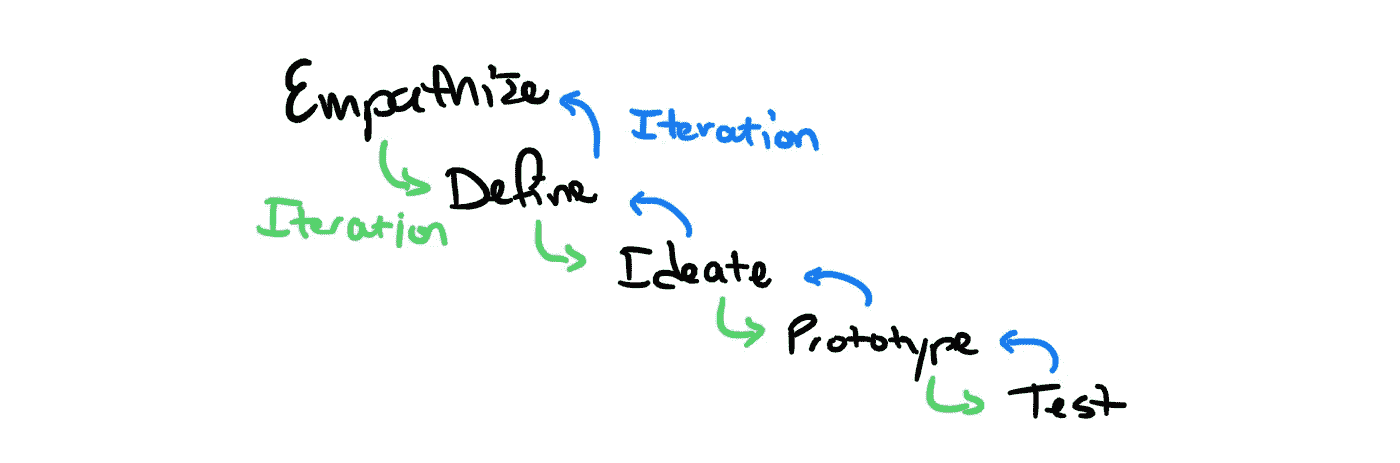 Empathize
Iteration
Define
Iteration
Ideate
Prototype
Test